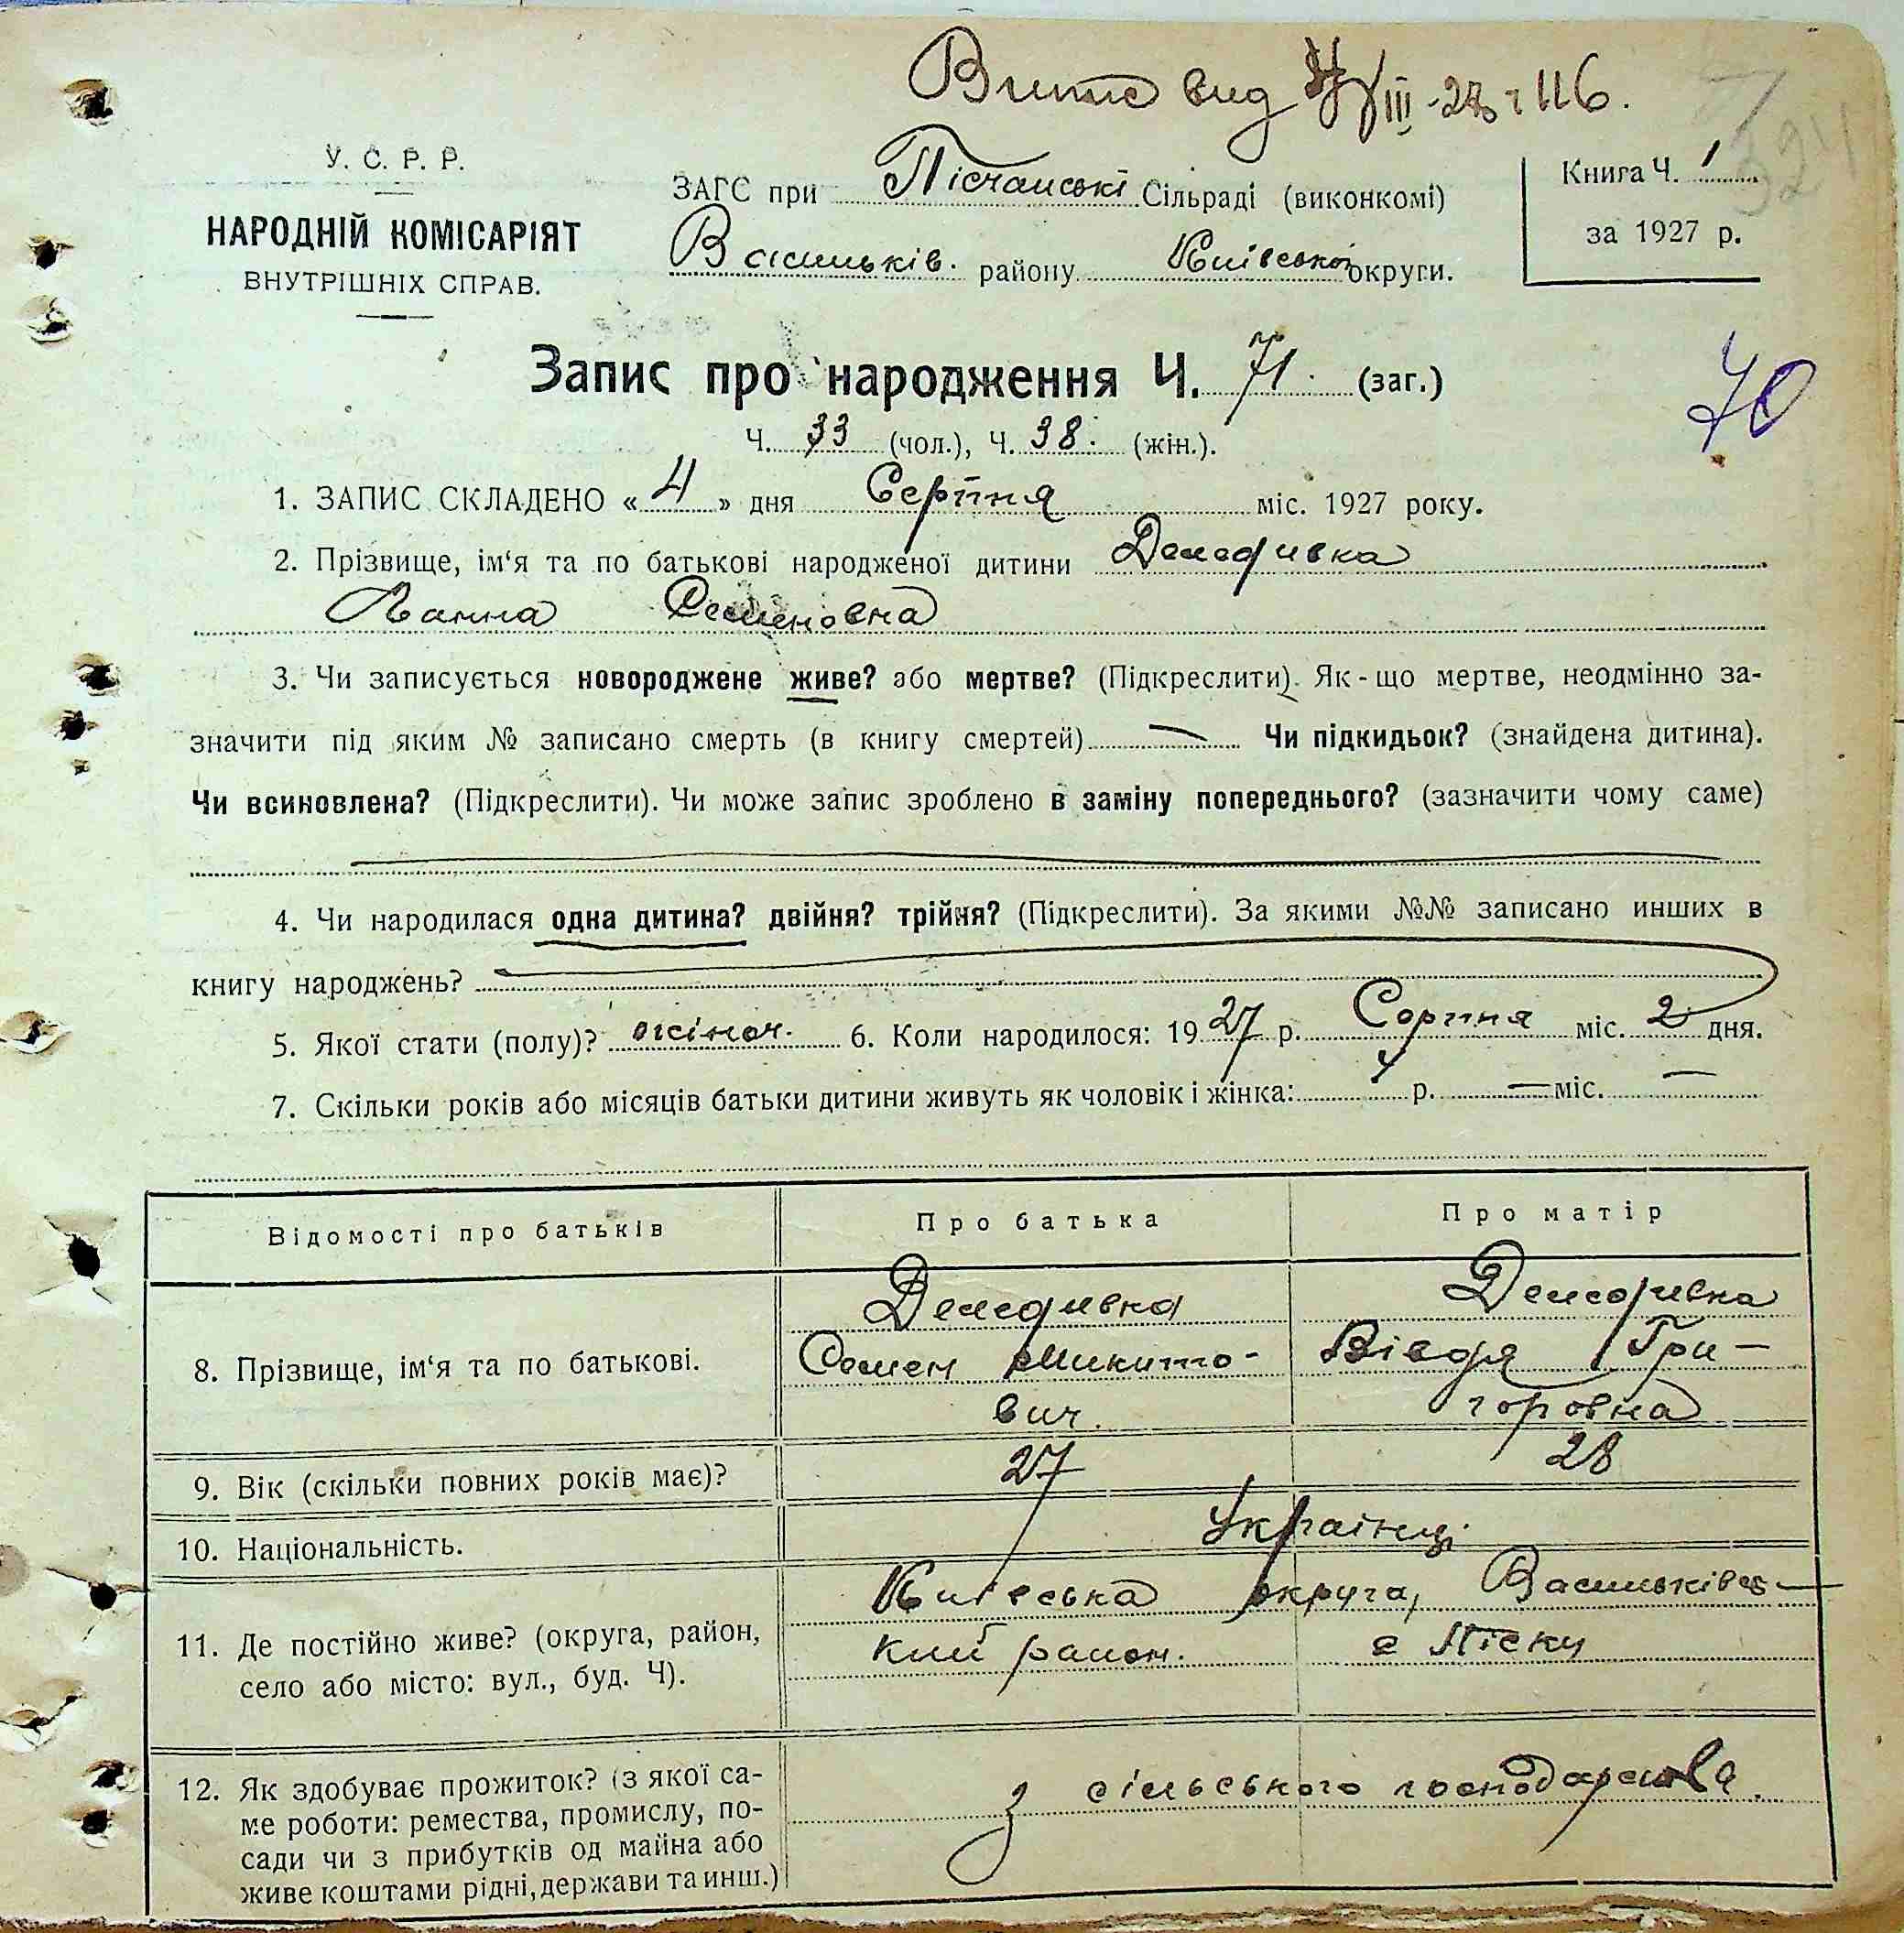 Витяг вид III-28 г 116.
У. С. Р. Р.
НАРОДНІЙ КОМІСАРІЯТ
ВНУТРІШНІХ СПРАВ.
ЗАГС при Пісчанські Сільраді (виконкомі)
Васильків. району Київської округи.
Книга Ч. 1
за 1927 р.
324
Запис про народження Ч. 71. (заг.)
70
Ч. 33 (чол.), Ч. 38. (жін.).
1. ЗАПИС СКЛАДЕНО « 4 » дня Серпня міс. 1927 року.
2. Прізвище, ім‘я та по батькові народженої дитини
Ганна Семеновна
3. Чи записується новороджене живе? або мертве? (Підкреслити). Як-що мертве, неодмінно за-
значити під яким № записано смерть (в книгу смертей) — Чи підкидьок? (знайдена дитина).
Чи всиновлена? (Підкреслити). Чи може запис зроблено в заміну попереднього? (зазначити чому саме)
4. Чи народилася одна дитина? двійня? трійня? (Підкреслити). За якими №№ записано инших в
книгу народжень?
5. Якої стати (полу)? жіноч. 6. Коли народилося: 1927 р. Серпня міс. 2 дня.
7. Скільки років або місяців батьки дитини живуть як чоловік і жінка: р. — міс. —
Відомості про батьків
Про батька
Про матір
8. Прізвище, ім‘я та по батькові.
Семен Микито-
вич.
Вівдя Гри-
горовна
9. Вік (скільки повних років має)?
27
28
10. Національність.
Українці
11. Де постійно живе? (округа, район,
село або місто: вул., буд. Ч).
Київська округа, Васильківсь-
кий район. с Піски
12. Як здобуває прожиток? (з якої са-
ме роботи: ремества, промислу, по-
сади чи з прибутків од майна або
живе коштами рідні, держави та инш.)
з сільського господарства.